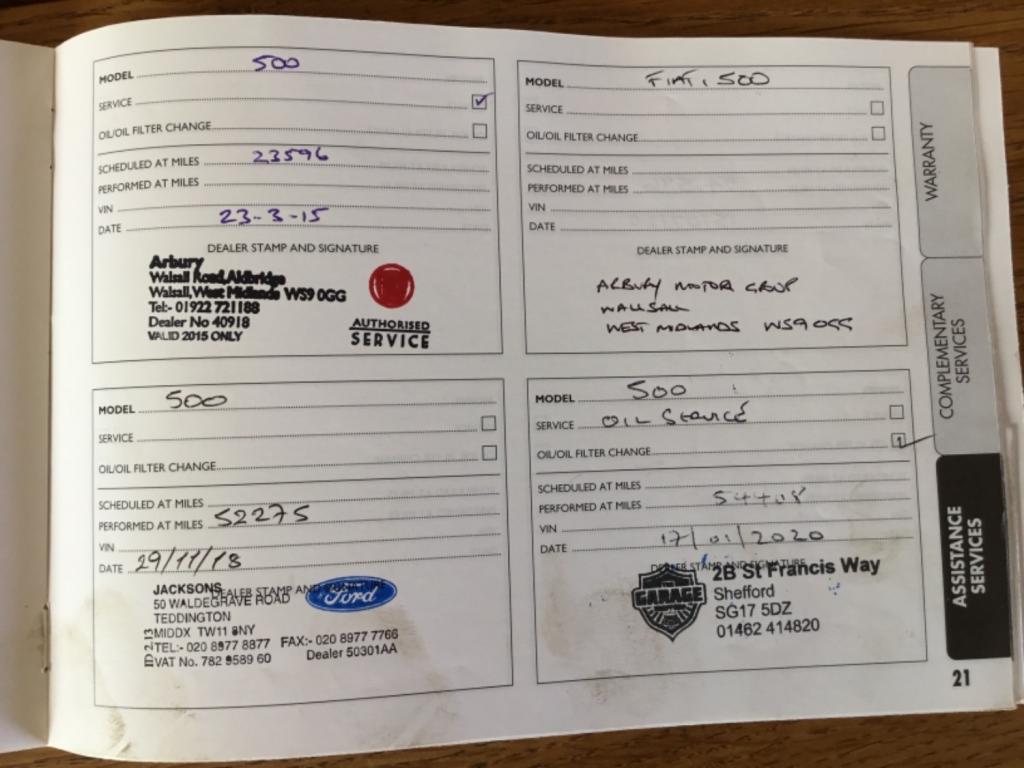 MODEL 500
SERVICE ✓
OIL/OIL FILTER CHANGE
SCHEDULED AT MILES 23596
PERFORMED AT MILES
VIN
DATE 23-3-15
DEALER STAMP AND SIGNATURE
Arbury
Walsall Road, Aldbridge
Walsall, West Midlands WS9 0GG
Tel:- 01922 721188
Dealer No 40918
VALID 2015 ONLY
AUTHORISED
SERVICE
MODEL FIAT, 500
SERVICE
OIL/OIL FILTER CHANGE
SCHEDULED AT MILES
PERFORMED AT MILES
VIN
DATE
DEALER STAMP AND SIGNATURE
ARBURY MOTOR GROUP
WALLSALL
WEST MIDLANDS WS9 0GG
MODEL 500
SERVICE
OIL/OIL FILTER CHANGE
SCHEDULED AT MILES
PERFORMED AT MILES 52275
VIN
DATE 29/11/18
DEALER STAMP AND SIGNATURE
JACKSONS
50 WALDEGRAVE ROAD
TEDDINGTON
MIDDX TW11 8NY
TEL:- 020 8977 8877 FAX:- 020 8977 7766
VAT No. 782 9589 60 Dealer 50301AA
Ford
MODEL 500
SERVICE OIL SERVICE
OIL/OIL FILTER CHANGE 1
SCHEDULED AT MILES
PERFORMED AT MILES 54408
VIN
DATE 17/01/2020
DEALER STAMP AND SIGNATURE
GARAGE
2B St Francis Way
Shefford
SG17 5DZ
01462 414820
WARRANTY
COMPLEMENTARY
SERVICES
ASSISTANCE
SERVICES
21